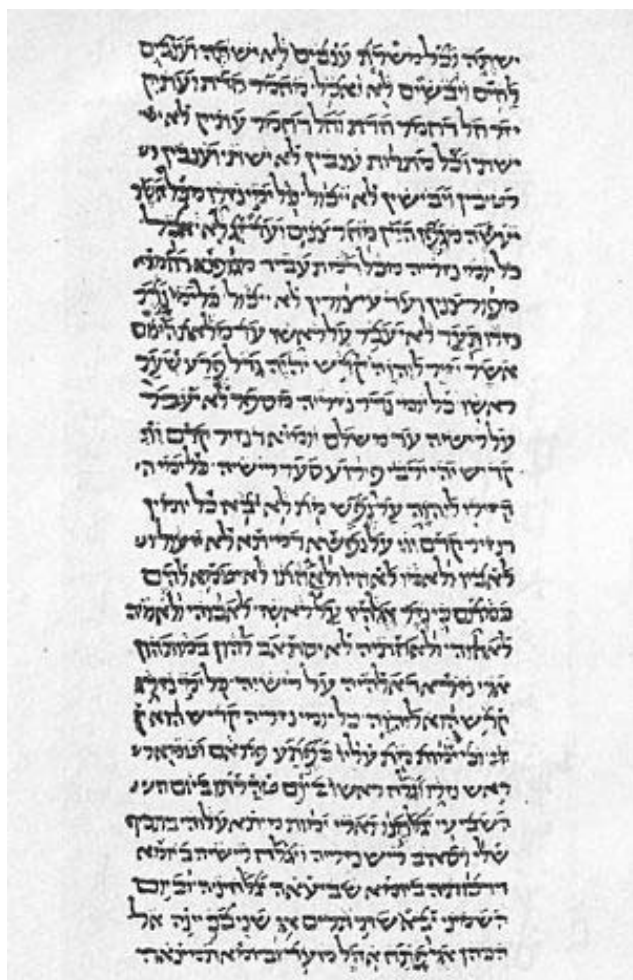 ישתה וכל משרת ענבים לא ישתה וענבים
לחים ויבשים לא יאכל מחמר חדת ועתיק
חל דחמר חדת וחל דחמר עתיק לא יש
ישתי וכל מתרות ענבין לא ישתי וענבין
רטיבין ויבישין לא ייכול כל ימי נזרו מכל אשר
יעשה מגפן היין מחרצנים ועד זג לא יאכל
כל יומי נזריה מכל דיתעביד מגופנא דחמרא
מפורצנין ועד עיצורין לא ייכול כל ימי נדר
נזרו תער לא יעבר על ראשו עד מלאת הימם
אשר יזיר ליהוה קדש יהיה גדל פרע שער
ראשו כל יומי נדר נזריה מספר לא יעבר
על רישיה עד משלם יומיא דנזיר קדם ייי
קדיש יהי מרבי פירוע סער רישיה כל ימי ה
הזירו ליהוה על נפש מת לא יבא כל יומין
דנזיר קדם ייי על נפשא דמיתא לא ייעול
לאביו ולאמו לאחיו ולאחתו לא יטמא להם
במתם כי נזר אלהיו על ראשו לאבוהי ולאמיה
לאחוהי ולאחתיה לא יסתאב להון במותהון
ארי נזרא דאלהיה על רישיה כל ימי נזרו
קדש הוא ליהוה כל יומי נזריה קדיש הוא ק
וכי ימות מת עליו בפתע פתאם וטמא
ראש נזרו וגלח ראשו ביום טהרתו ביום
השביעי יגלחנו וארי ימות מיתא עלוהי בתכיף
שלו ויסאב ריש נזריה ויגלח רישיה ביומא
דדכותיה ביומא שביעאה יגלחיניה וביום
השמיני יבא שתי תרים או שני בני יונה אל
הכהן אל פתח אהל מועד וביומא תמינאה